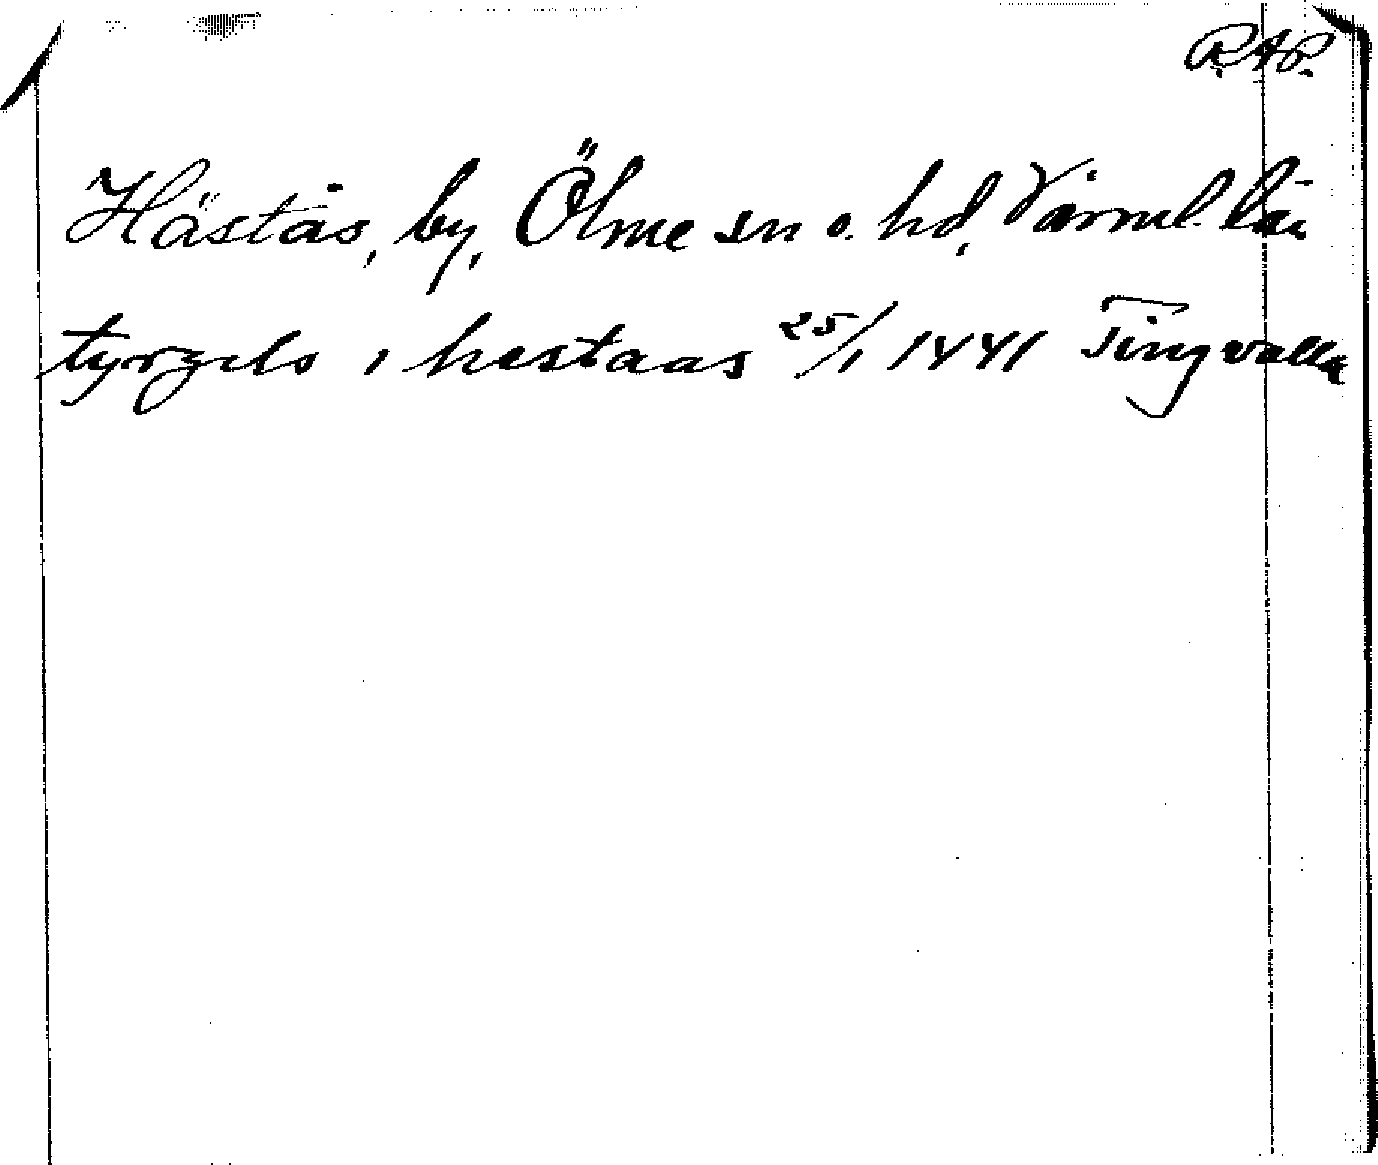 RAP.
Hästås, by, Ölme sn o. hd, Värml. län
tyrgils i hestaas 25/1 1441 Tingvalla